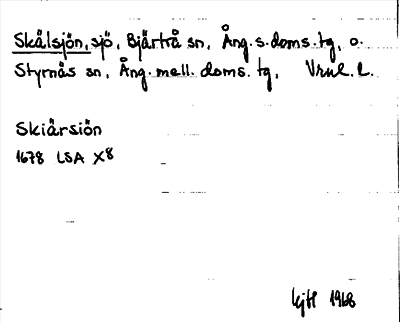 Skålsjön, sjö, Bjärtrå sn, Ång. s. doms. tg, o.
Styrnäs sn, Ång. mell. doms. tg, Vrnl. l.
Skiärsiön
1678 LSA X8
kjtl 1968